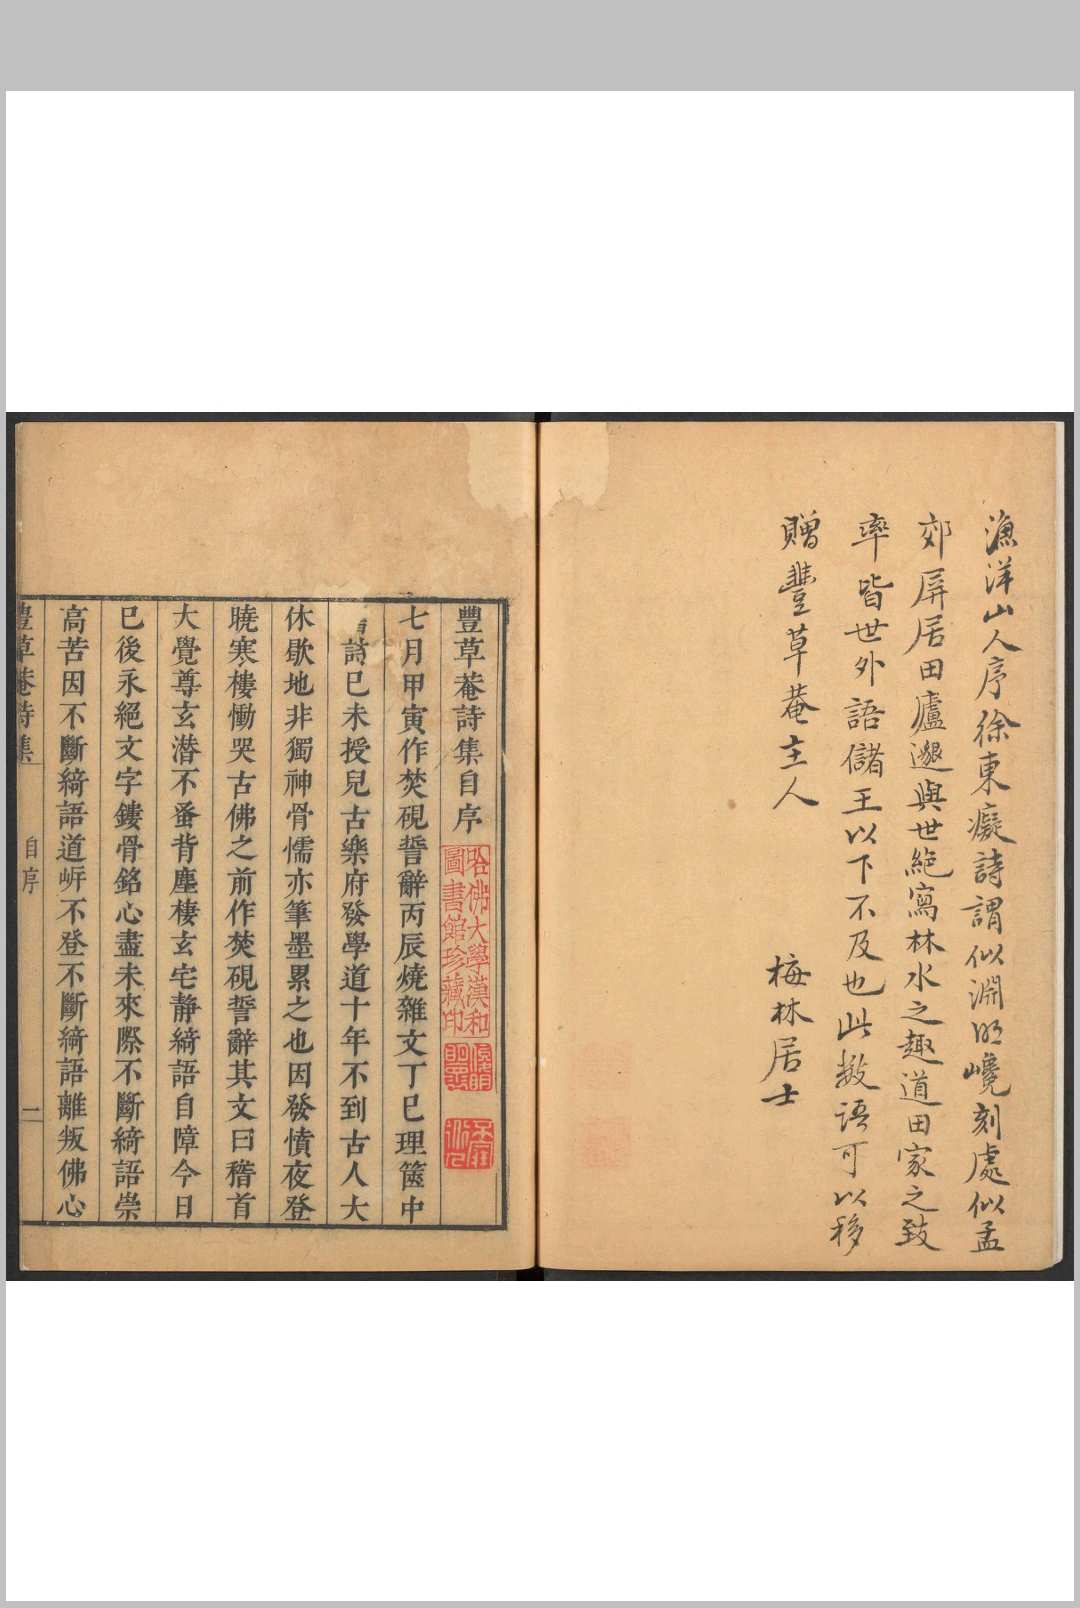 漁洋山人序徐東癡詩謂似淵明巉刻處似孟
郊屏居田廬邈與世絕寫林水之趣道田家之致
率皆世外語儲王以下不及也此數語可以移
贈豐草菴主人
梅林居士
豐草菴詩集自序
哈佛大學漢和
圖書館珍藏印
七月甲寅作焚硯誓辭丙辰燒雜文丁巳理篋中
詩巳未授兒古樂府發學道十年不到古人大
休歇地非獨神骨懦亦筆墨累之也因發憤夜登
曉寒樓慟哭古佛之前作焚硯誓辭其文曰稽首
大覺尊玄潛不蚤背塵棲玄宅靜綺語自障今日
巳後永絕文字鏤骨銘心盡未來際不斷綺語崇
高苦因不斷綺語道岍不登不斷綺語離叛佛心
豐草菴詩集
自序
二